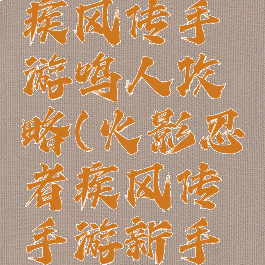 疾风传手
游鸣人攻
略(火影忍
者疾风传
手游新手